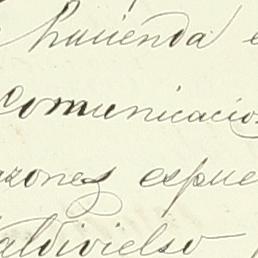 hacienda e
comunicacio
azones espue
aldivielso